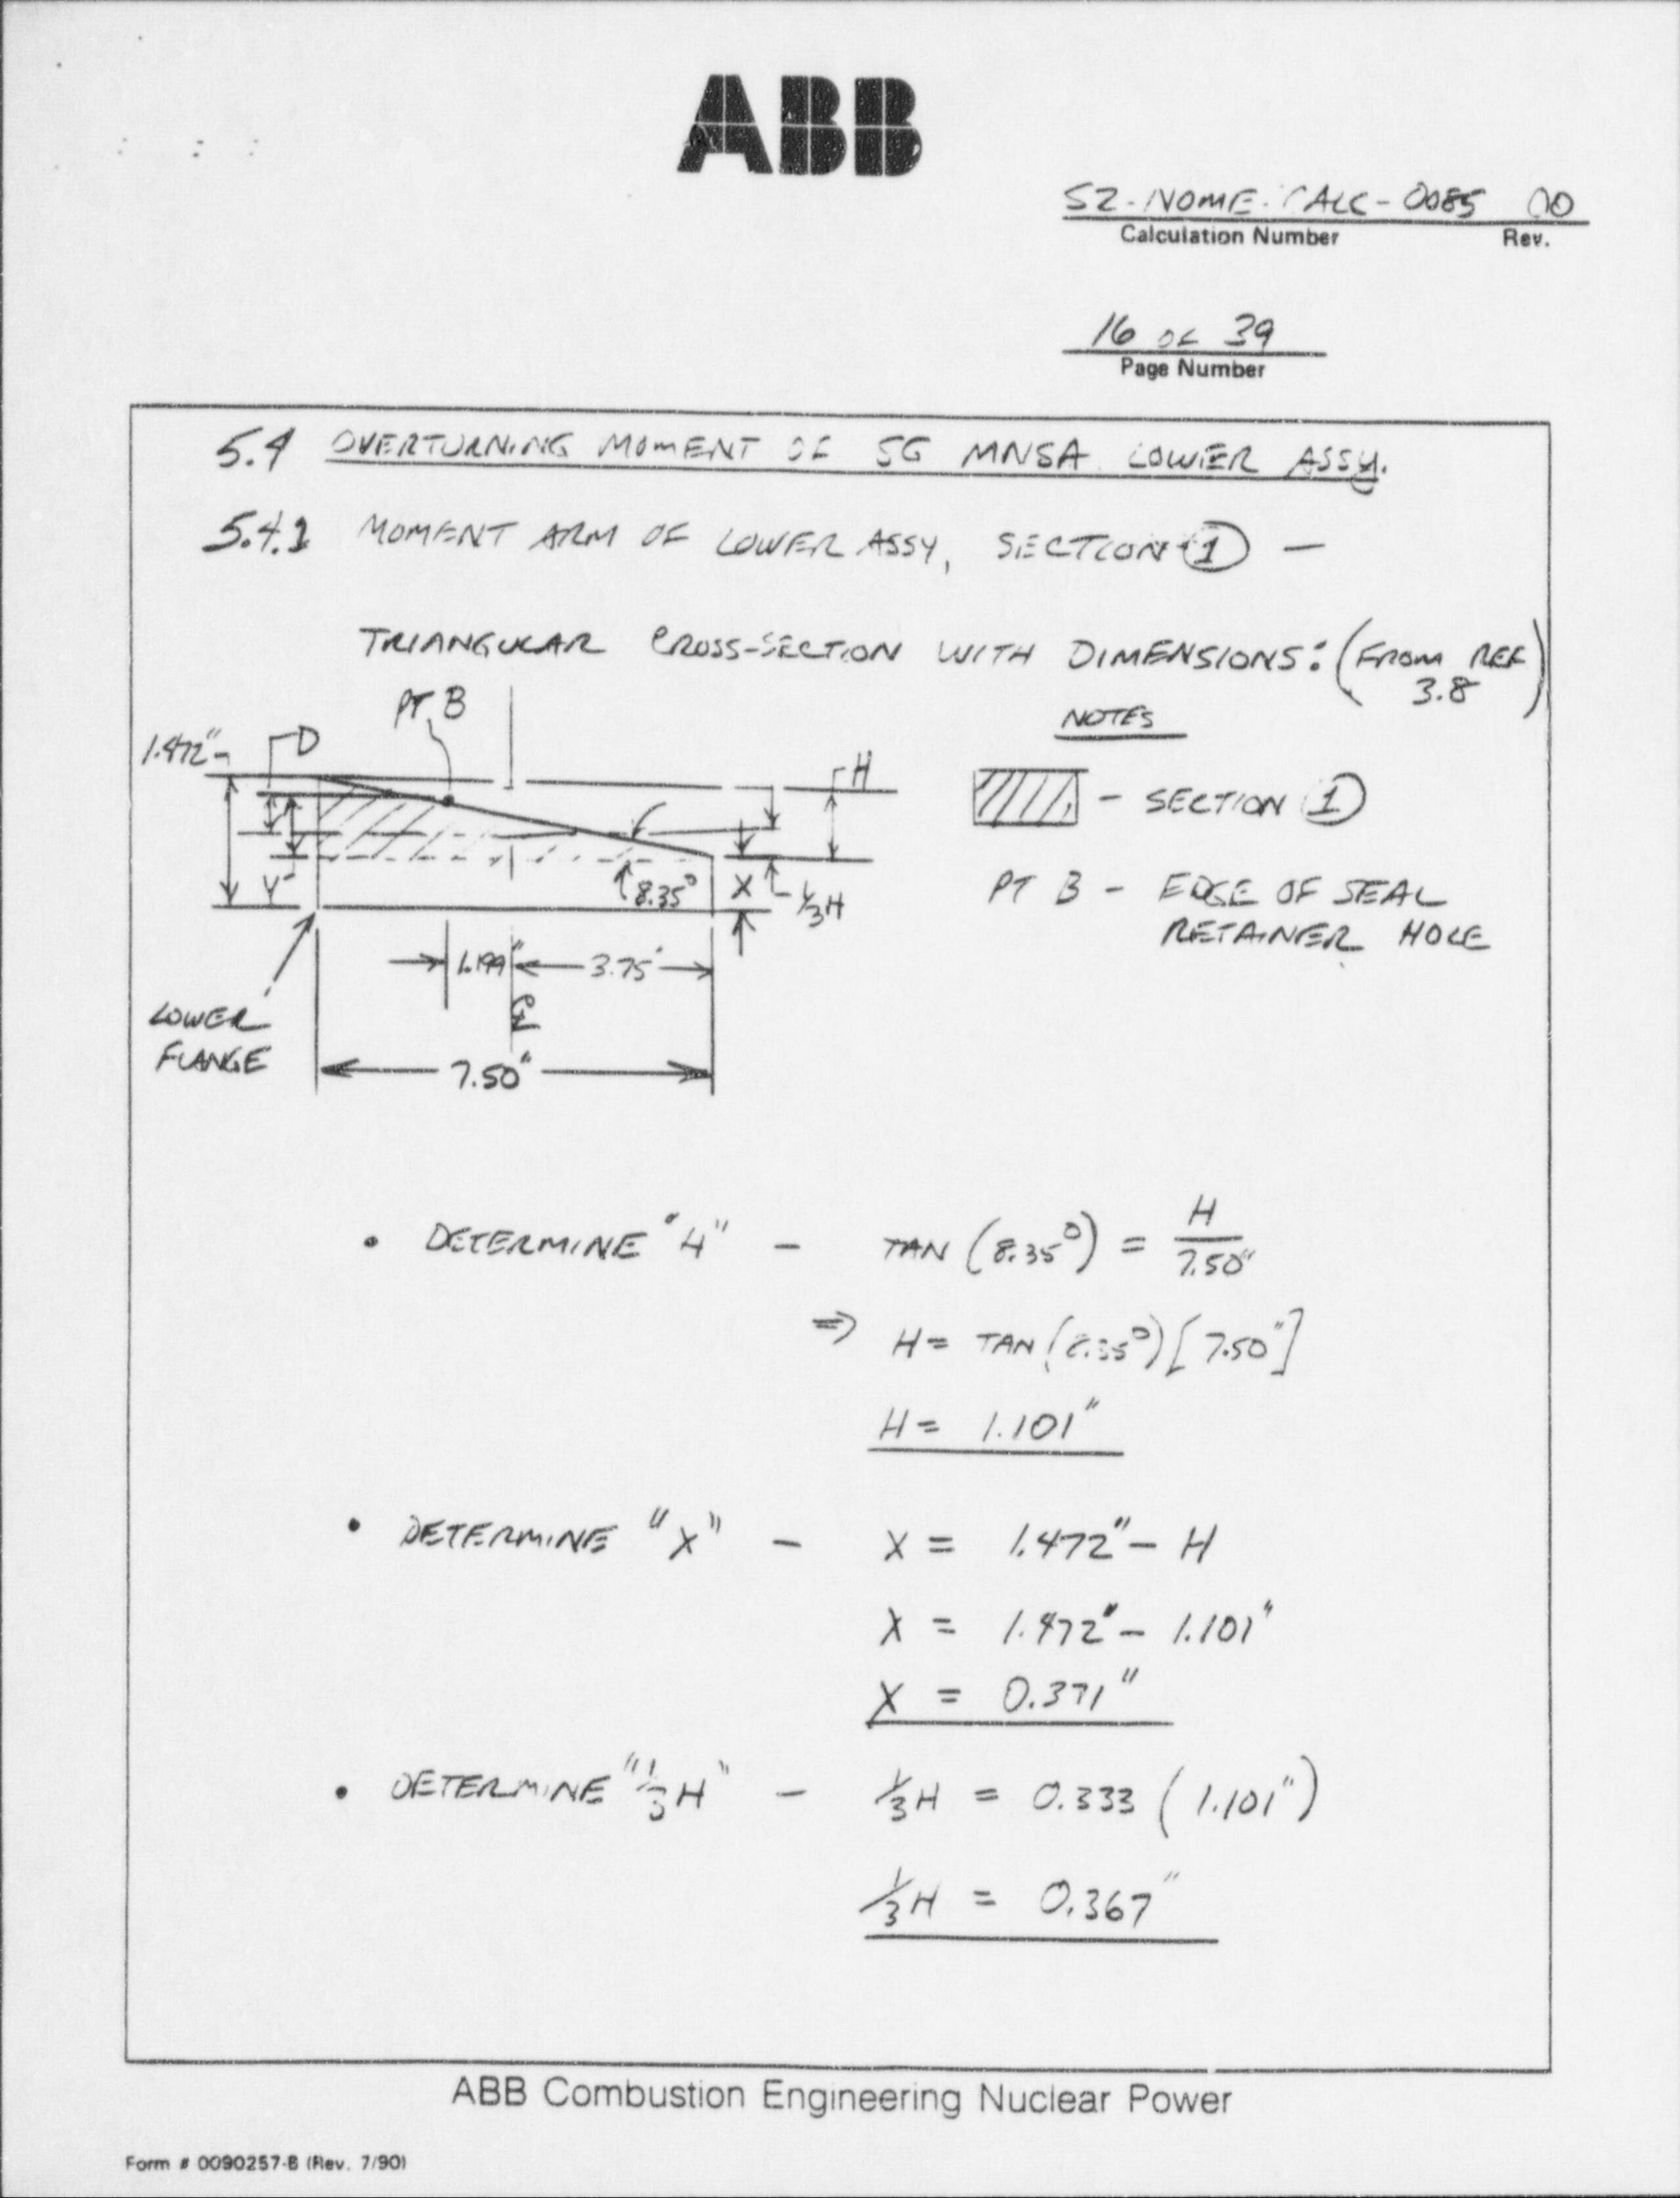 ABB
S2-NOME-CALC-0085 00
Calculation Number Rev.
16 OF 39
Page Number
5.4 OVERTURNING MOMENT OF SG MNSA LOWER ASSY.
5.4.1 MOMENT ARM OF LOWER ASSY, SECTION 1 —
TRIANGULAR CROSS-SECTION WITH DIMENSIONS: (FROM REF 3.8)
NOTES
PT B
1.472"
D
H
- SECTION 1
Y
8.35°
X
1/3H
PT B - EDGE OF SEAL
RETAINER HOLE
3.75"
LOWER
FLANGE
℄
7.50"
• DETERMINE "H" - TAN (8.35°) = H/7.50"
⇒ H = TAN (8.35°)[7.50"]
H = 1.101"
• DETERMINE "X" - X = 1.472" - H
X = 1.472" - 1.101"
X = 0.371"
• DETERMINE "1/3H" - 1/3H = 0.333 (1.101")
1/3H = 0.367"
ABB Combustion Engineering Nuclear Power
Form # 0090257-B (Rev. 7/90)